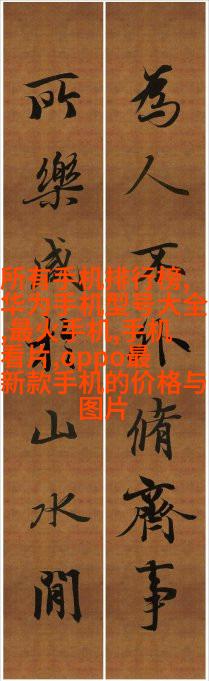 為人不外脩齊事
所樂咸山水間
所有手机排行榜,
华为手机型号大全
,最火手机,手机
看片,oppo最
新款手机的价格与
图片